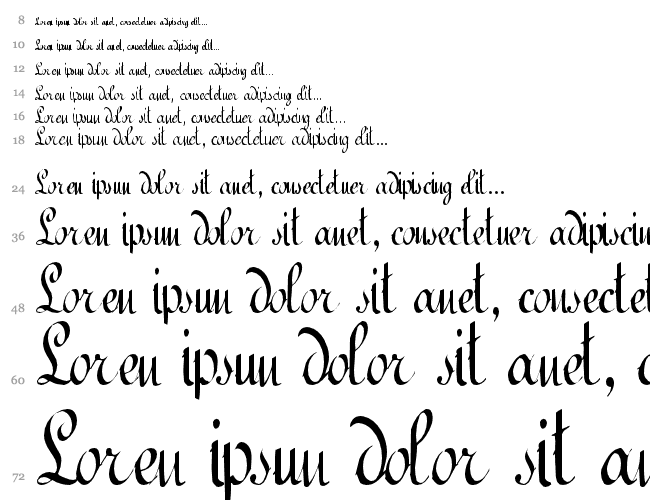 8 Lorem ipsum dolor sit amet, consectetuer adipiscing elit...
10 Lorem ipsum dolor sit amet, consectetuer adipiscing elit...
12 Lorem ipsum dolor sit amet, consectetuer adipiscing elit...
14 Lorem ipsum dolor sit amet, consectetuer adipiscing elit...
16 Lorem ipsum dolor sit amet, consectetuer adipiscing elit...
18 Lorem ipsum dolor sit amet, consectetuer adipiscing elit...
24 Lorem ipsum dolor sit amet, consectetuer adipiscing elit...
36 Lorem ipsum dolor sit amet, consectetuer adipiscin
48 Lorem ipsum dolor sit amet, consectet
60 Lorem ipsum dolor sit amet, c
72 Lorem ipsum dolor sit am